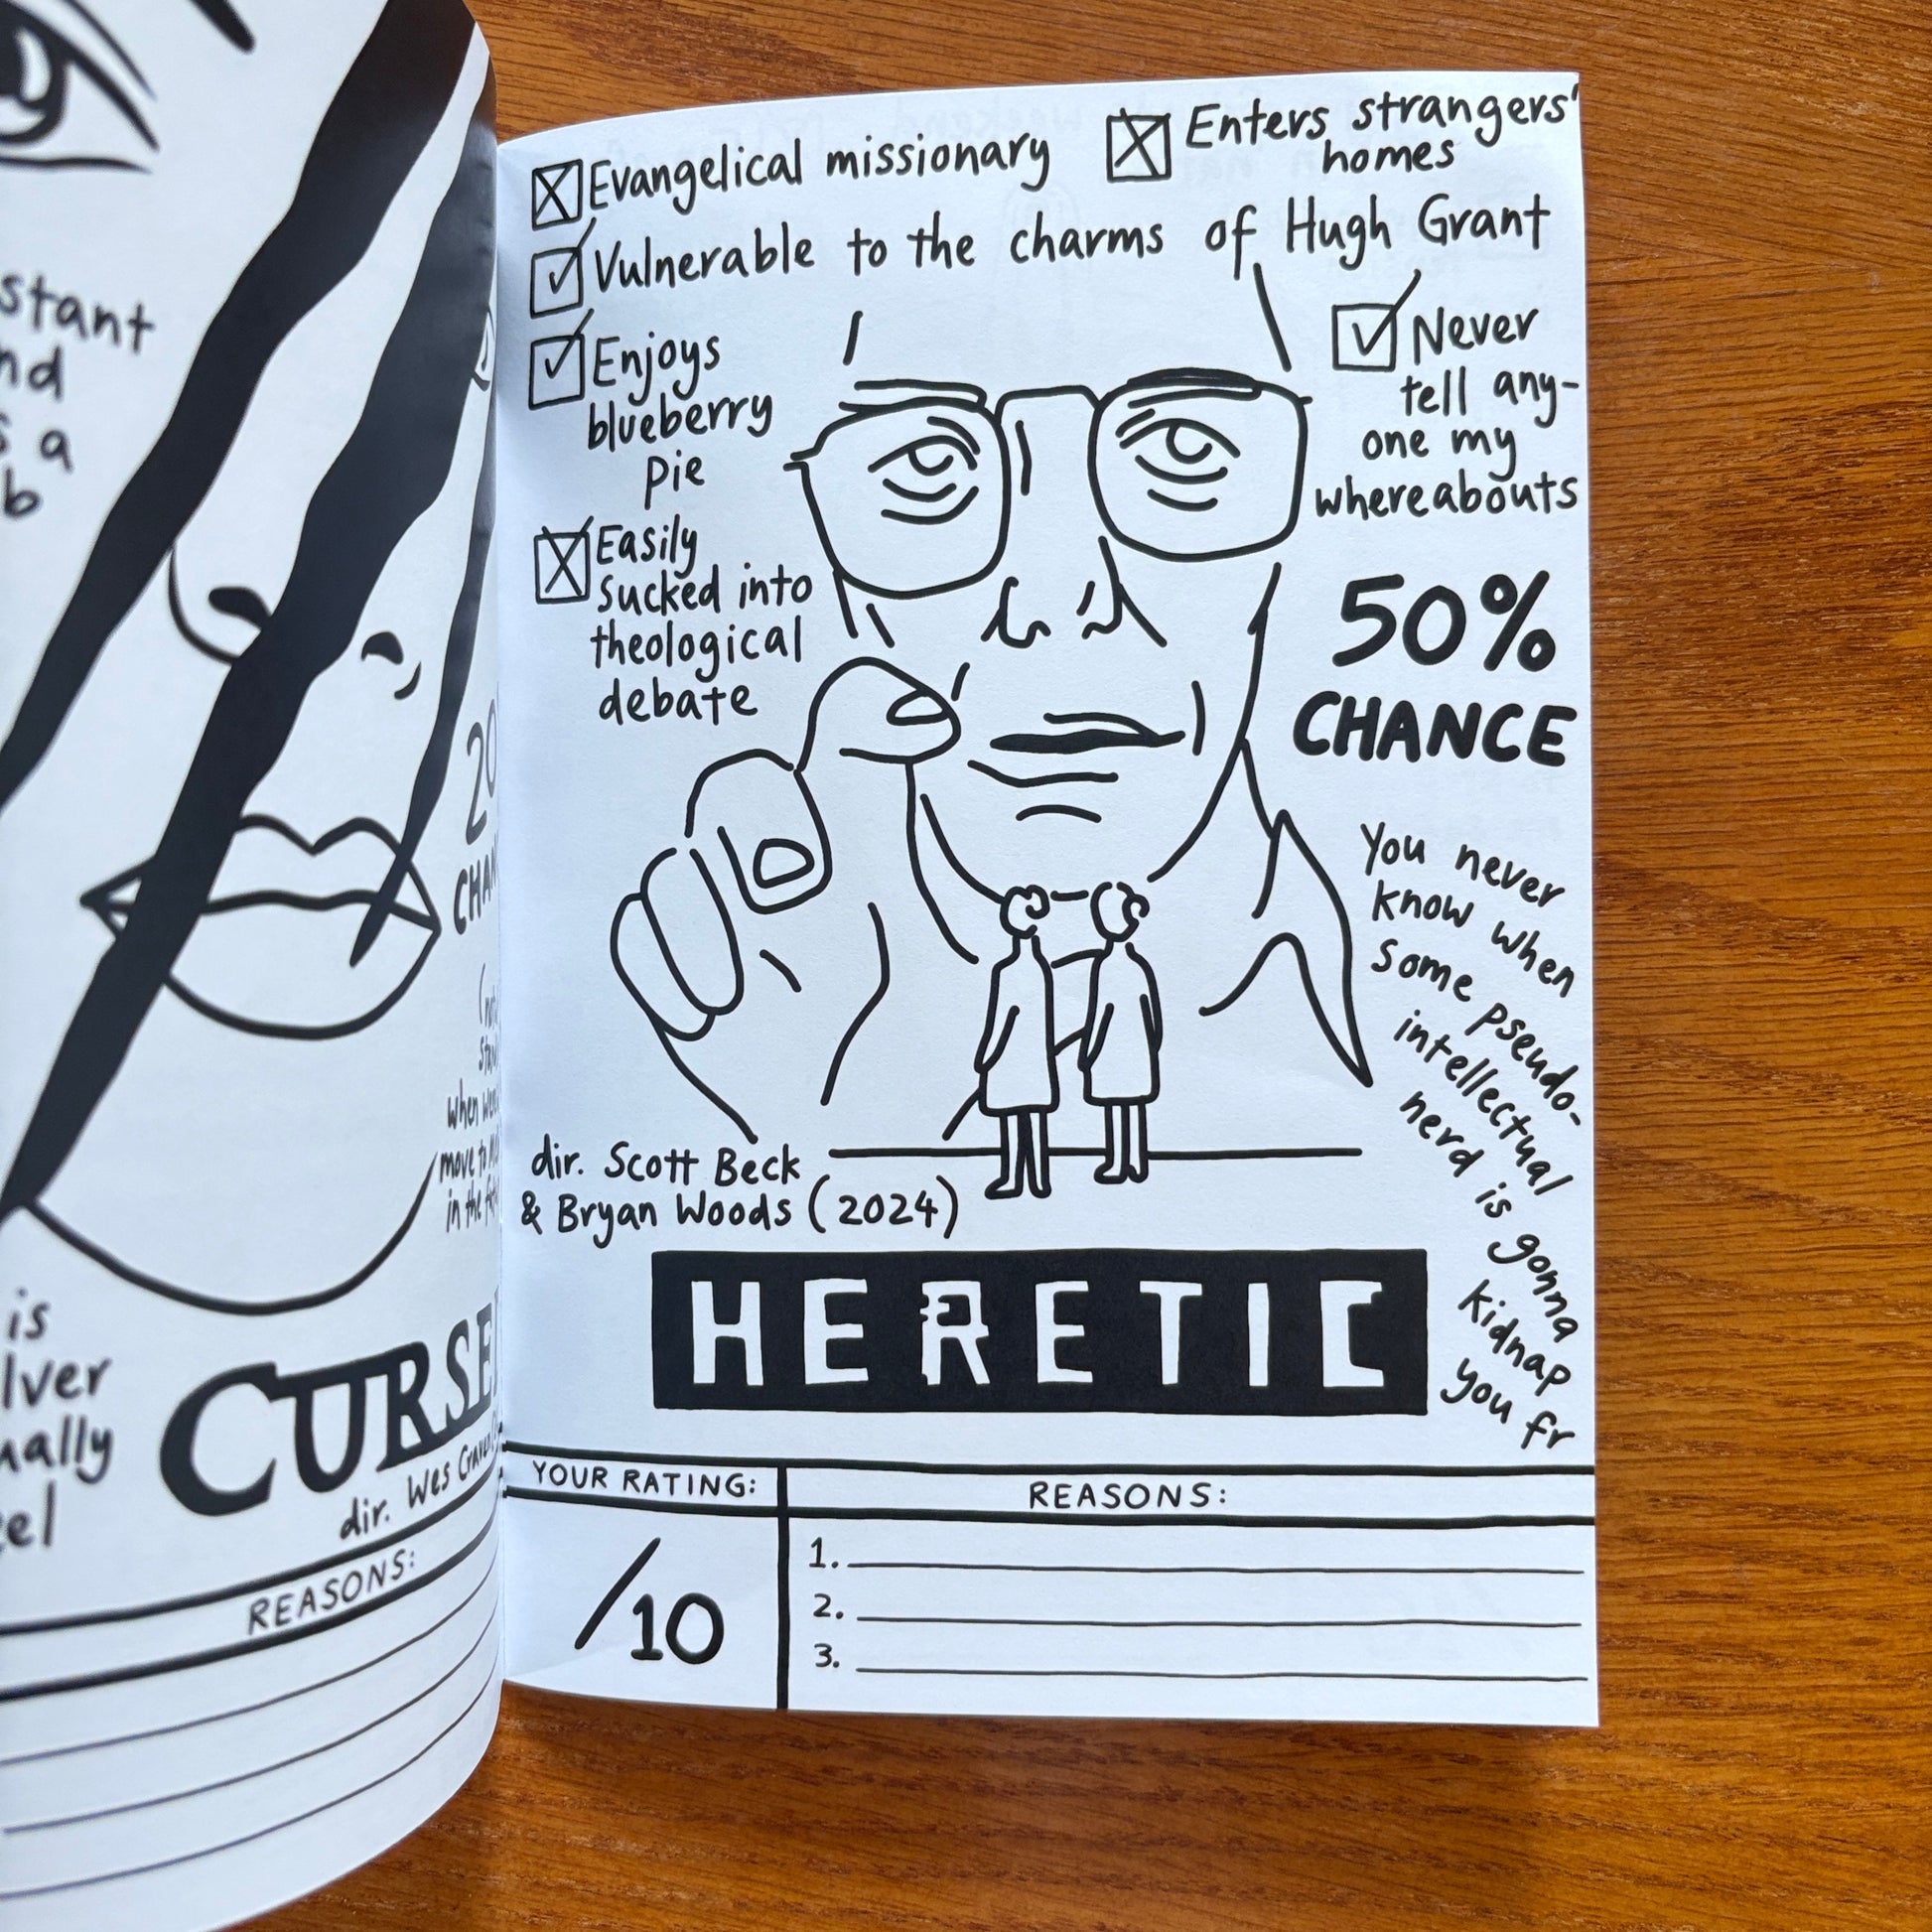 stant
nd
s a
b
20
CHAN
when
move to
in the
is
lver
ually
eel
CURSE
dir. Wes Craven
REASONS:
☒ Evangelical missionary
☒ Enters strangers'
homes
☑ Vulnerable to the charms of Hugh Grant
☑ Enjoys
blueberry
pie
☑ Never
tell any-
one my
whereabouts
☒ Easily
sucked into
theological
debate
50%
CHANCE
You never
know when
some pseudo-
intellectual
nerd is gonna
kidnap
you fr
dir. Scott Beck
& Bryan Woods (2024)
HERETIC
YOUR RATING:
REASONS:
/10
1.
2.
3.